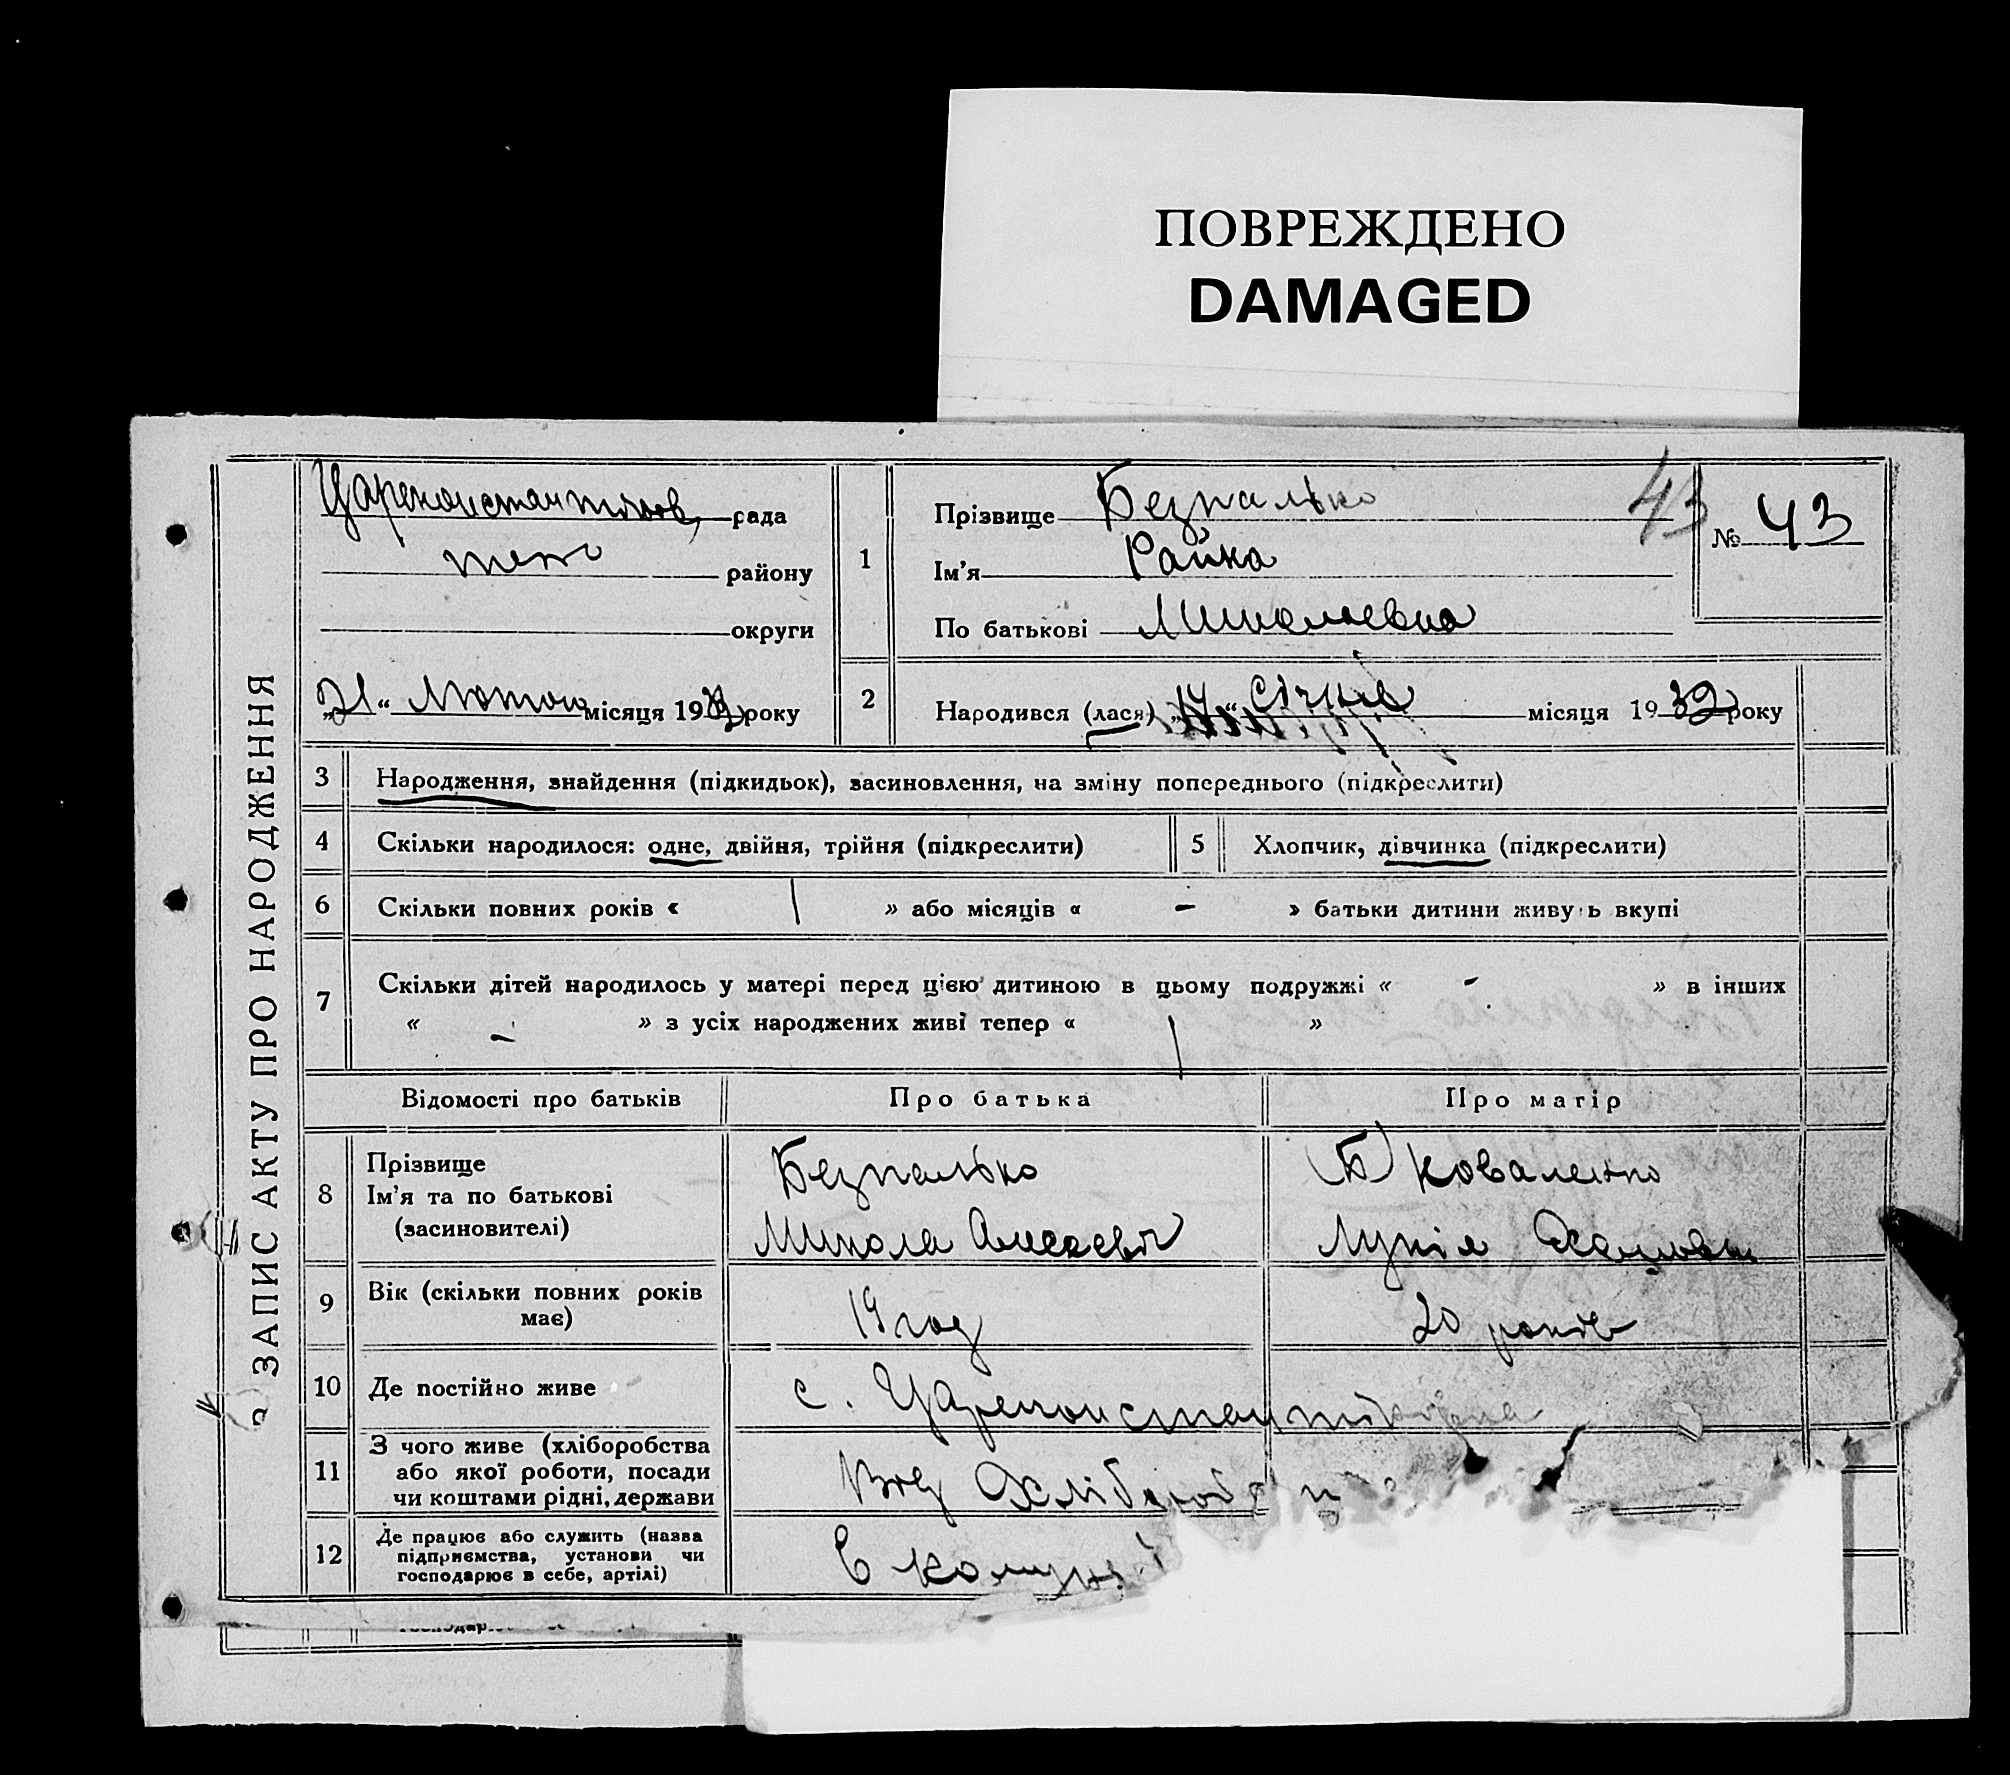 ПОВРЕЖДЕНО
DAMAGED
ЗАПИС АКТУ ПРО НАРОДЖЕННЯ
Царекостантинов, рада
теж району
округи
„21“ Лютого місяця 193 року
1
Прізвище Безпалько
Ім'я Райка
По батькові Миколаевна
43
№ 43
2
Народився (лася) „14“ Січня місяця 1932 року
3 Народження, знайдення (підкидьок), засиновлення, на зміну попереднього (підкреслити)
4 Скільки народилося: одне, двійня, трійня (підкреслити)
5 Хлопчик, дівчинка (підкреслити)
6 Скільки повних років « 1 » або місяців « - » батьки дитини живуть вкупі
7 Скільки дітей народилось у матері перед цією дитиною в цьому подружжі « - » в інших
« - » з усіх народжених живі тепер « 1 »
Відомості про батьків Про батька Про матір
8 Прізвище
Ім'я та по батькові
(засиновителі)
Безпалько
Микола
(Б) Коваленко
Лукія
9 Вік (скільки повних років
має)
19 год
20 років
10 Де постійно живе
с.
11 З чого живе (хліборобства
або якої роботи, посади
чи коштами рідні, держави
Від
12 Де працює або служить (назва
підприємства, установи чи
господарює в себе, артілі)
в комуні